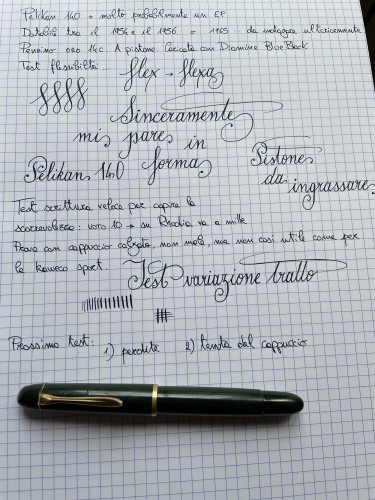 Pelikan 140 → molto probabilmente un EF
Databile tra il 1954 e il 1956 o 1965: da indagare ulteriormente
Pennino oro 14c A pistone Caricata con Diamine Blue Black
Test flessibilità...
flex - flexa
Sinceramente
mi pare in
forma
Pelikan 140
Pistone
da ingrassare
Test scrittura veloce per capire la
scorrevolezza: voto 10 → su Rhodia va a mille
Prova con cappuccio calzato, non male, ma non così utile come per
la Kaweco Sport.
Test variazione tratto
Prossimo test: 1) perdite 2) tenuta del cappuccio